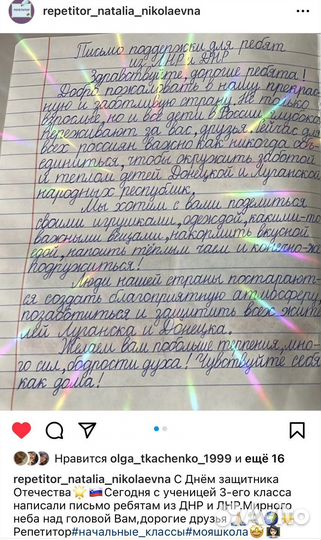 repetitor_natalia_nikolaevna
Письмо поддержки для ребят
из ЛНР и ДНР
Здравствуйте, дорогие ребята!
Добро пожаловать в нашу прекрас-
ную и заботливую страну. Не только
взрослые, но и все дети в России глубоко
переживают за вас, друзья. Сейчас для
всех россиян важно как никогда объ-
единиться, чтобы окружить заботой
и теплом детей Донецкой и Луганской
народных республик.
Мы хотим с вами поделиться
своими игрушками, одеждой, какими-то
важными вещами, накормить вкусной
едой, напоить тёплым чаем и конечно-же
подружиться!
Люди нашей страны постарают-
ся создать благоприятную атмосферу,
позаботиться и защитить всех жите
лей Луганска и Донецка.
Желаем вам побольше терпения, мно-
го сил, бодрости духа! Чувствуйте себя
как дома!
Нравится olga_tkachenko_1999 и ещё 16
repetitor_natalia_nikolaevna С Днём защитника
Отечества🌟🇷🇺Сегодня с ученицей 3-его класса
написали письмо ребятам из ДНР и ЛНР.Мирного
неба над головой Вам,дорогие друзья
Репетитор#начальные_классы#мояшкола
Avito